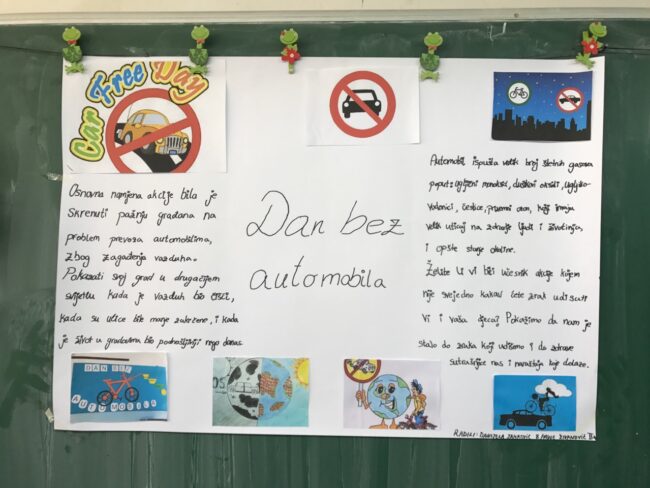 Car Free Day
Osnovna namjena akcije bila je
skrenuti pažnju građana na
problem prevoza automobilima,
zbog zagađenja vazduha.
Pokazati svoj grad u drugačijem
svijetlu kada je vazduh bio čišći,
kada su ulice bile manje zakrčene, i kada
je život u gradovima bio podnošljiviji nego danas.
Dan bez
automobila
Automobil ispušta velik broj štetnih gasova
poput: ugljični monoksid, dušikovi oksidi, ugljiko-
vodonici, čestice, prizemni ozon, koji imaju
velik uticaj na zdravlje ljudi i životinja,
i opšte stanje okoline.
Želite li vi biti učesnik akcije kojem
nije svejedno kakav ćete zrak udisati
Vi i vaša djeca? Pokažimo da nam je
stalo do zraka koji udišemo i do zdrave
sutrašnjice nas i naraštaja koje dolaze.
DAN BEZ
AUTOMOBILA
RADILI: DANIJELA